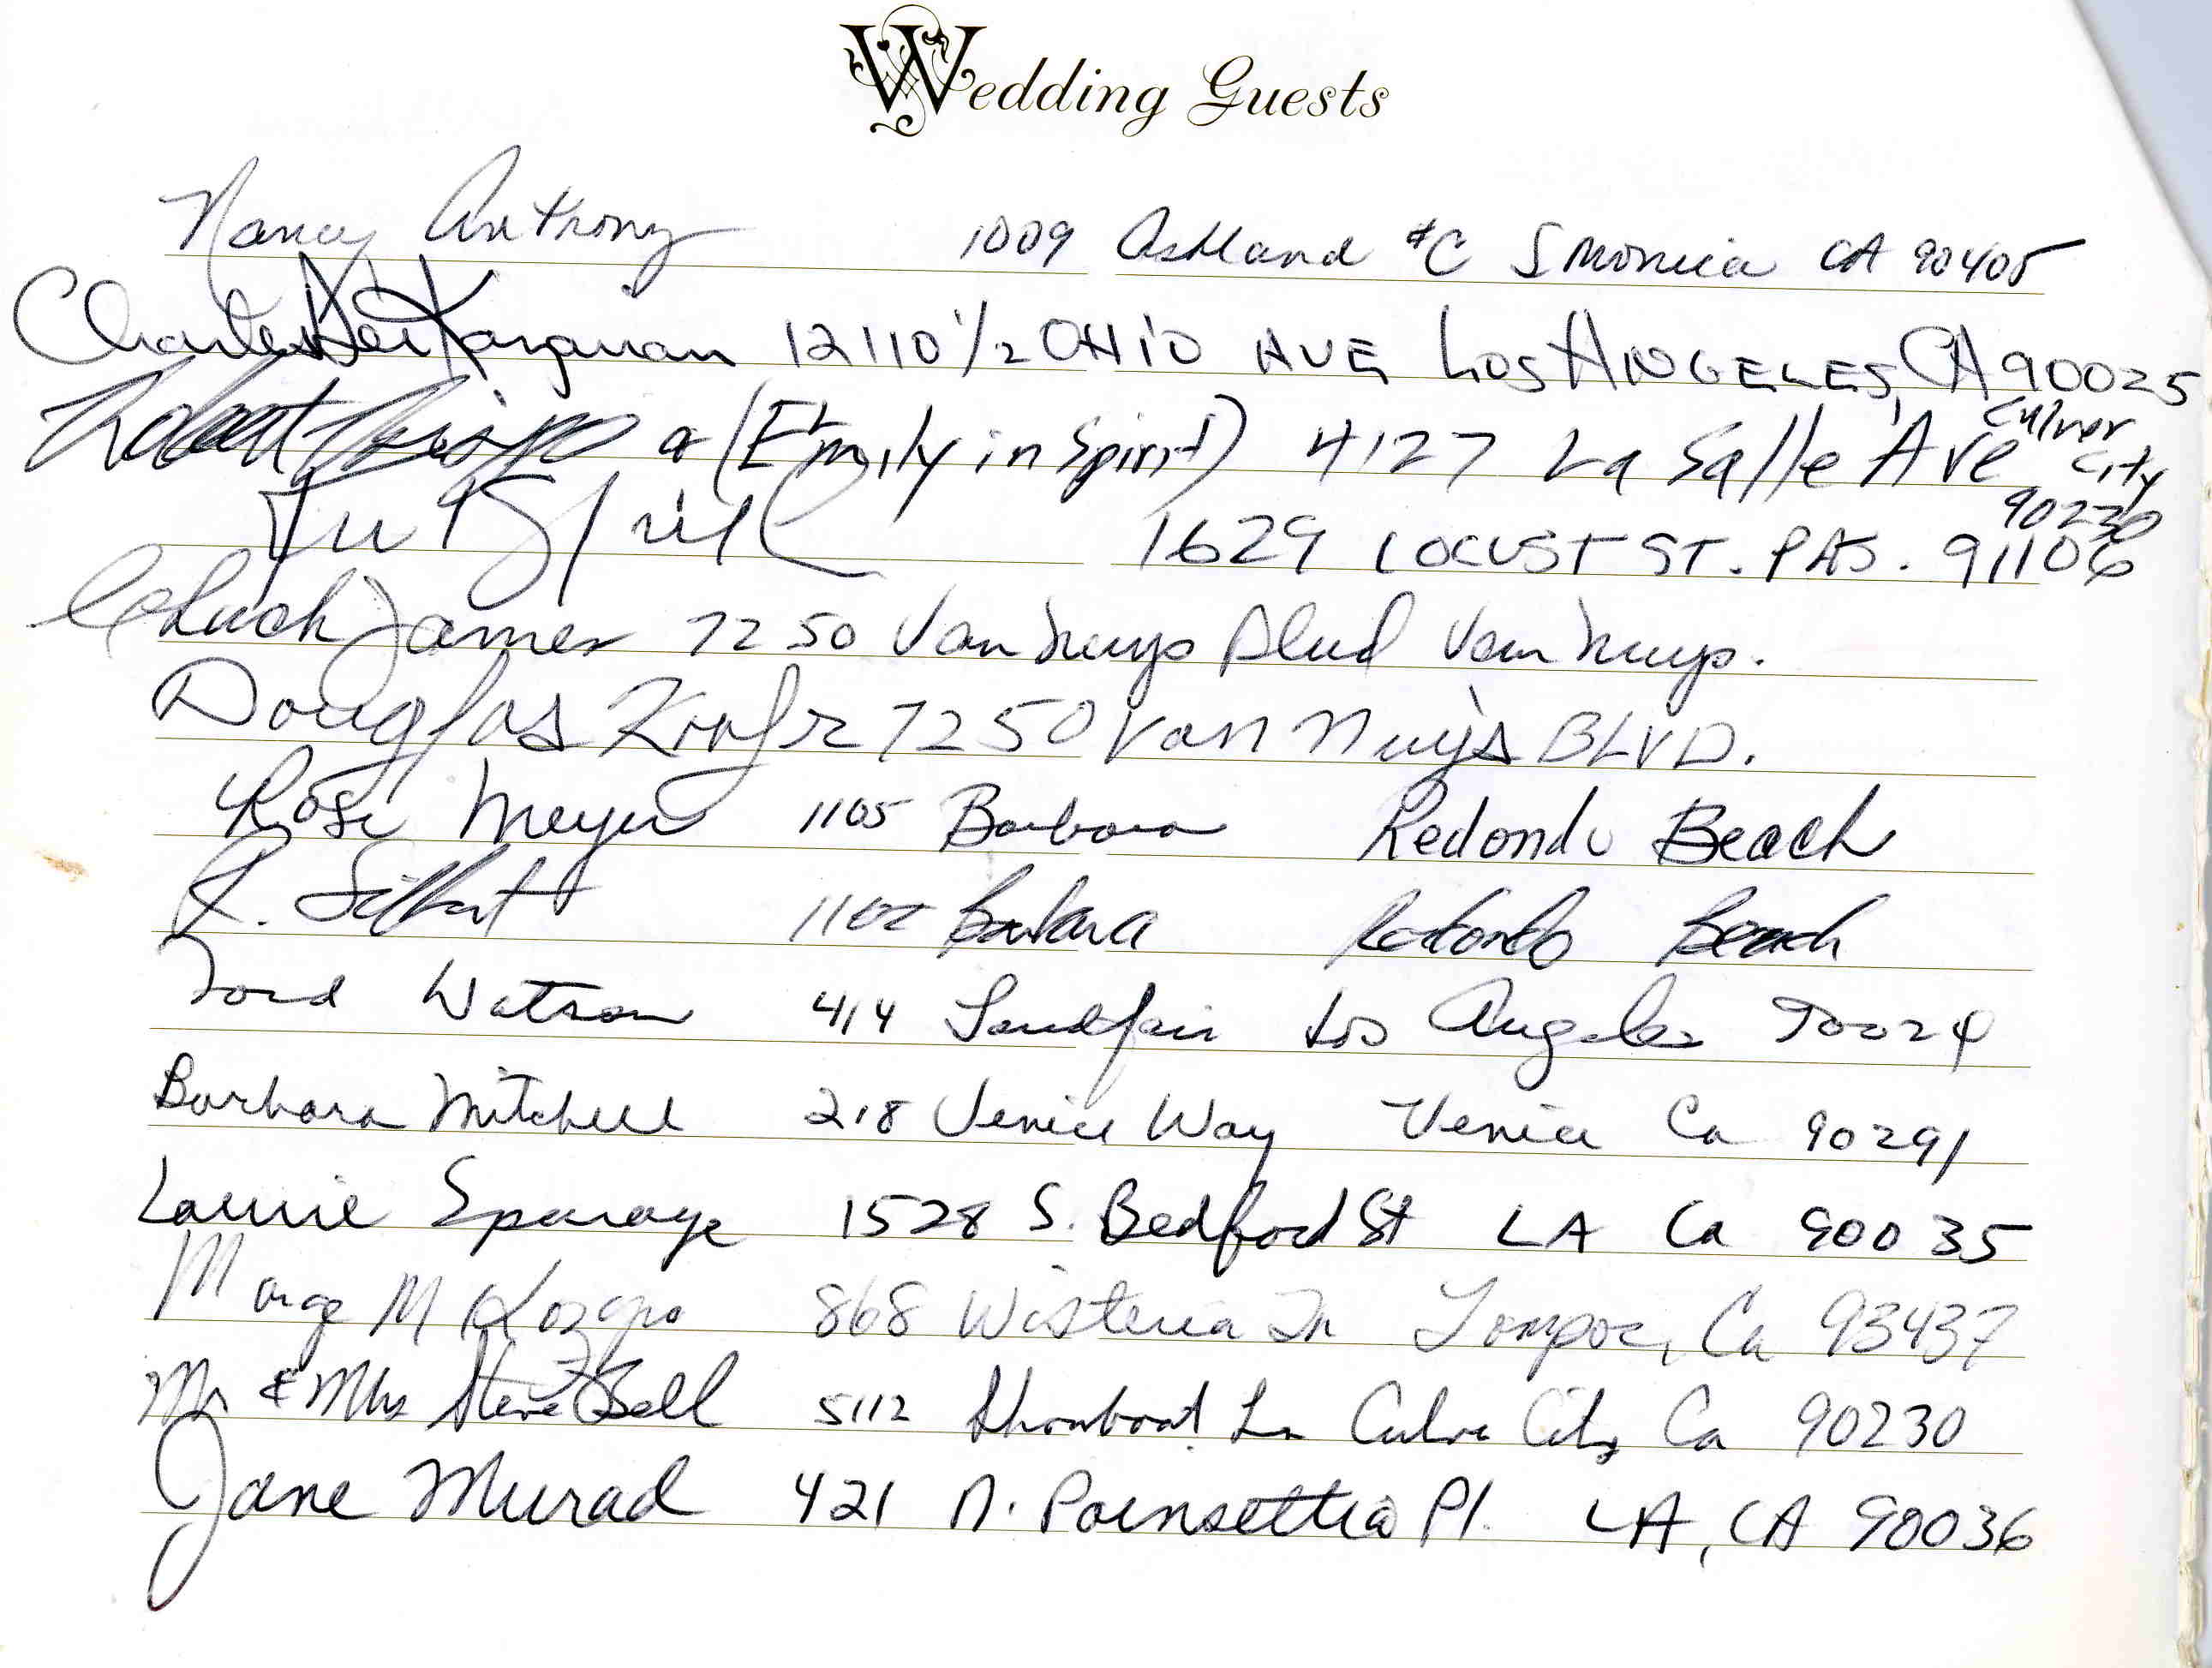 Wedding Guests
Nancy Anthony 1009 Ashland #C S Monica CA 90405
Charles Der Kazarian 12110 1/2 OHIO AVE, LOS ANGELES, CA 90025
Robert & (Emily in Spirit) 4127 La Salle Ave Culver City 90230
1629 LOCUST ST. PAS. 91106
Chuck James 7250 Van Nuys Blvd Van Nuys.
Douglas 7250 Van Nuys BLVD.
Rose Meyer 1105 Barbara Redondo Beach
Barbara Redondo Beach
Todd Watson 414 Landfair Los Angeles 90024
Barbara Mitchell 218 Venice Way Venice Ca 90291
Laurie 1528 S. Bedford St LA Ca 90035
Marge M 868 Wisteria Ln Lompoc, Ca 93437
Mr & Mrs Steve Bell 5112 Showboat Ln Culver City Ca 90230
Jane Murad 421 N. Poinsettia Pl. LA, CA 90036